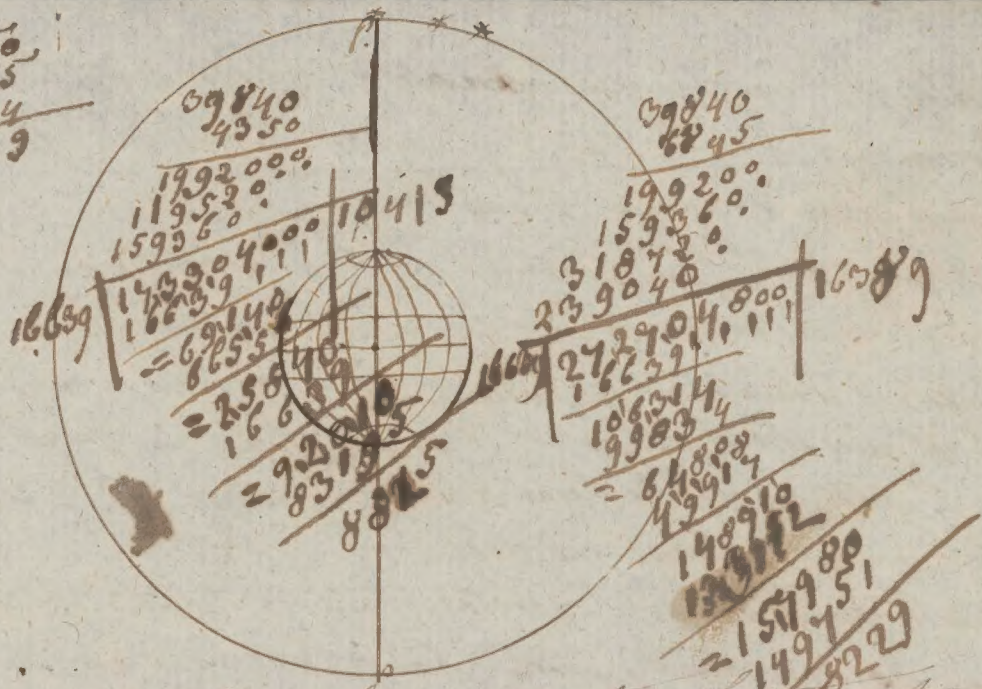 0
5
4
9
39840
4350
1992000
119520
159360
16639 173304000 10415
16639
=69140
66556
=25840
16639
=92010
83195
8825
39840
6845
199200
159360
318720
239040
16639 272704800 16389
16639
106314
99834
=64808
49917
148910
133112
=157980
149751
8229